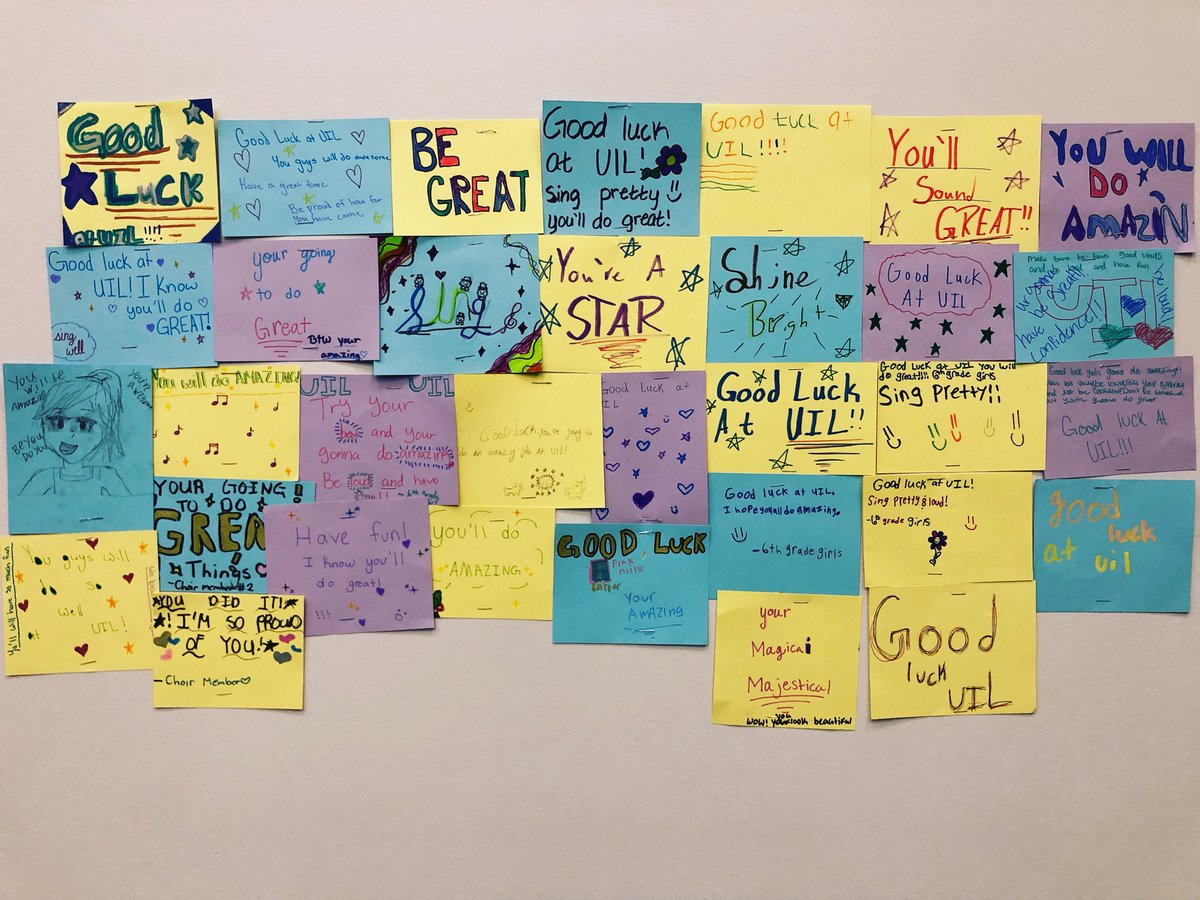 Good
Luck
at UIL!!!!
Good Luck at UIL
You guys will do awesome
Have a great time
Be proud of how far
You have come
BE
GREAT
Good luck
at UIL!
Sing pretty
you'll do great!
Good Luck at
UIL!!!!
You'll
Sound
GREAT!!
You WILL
DO
AMAZIN
Good luck at
UIL! I know
you'll do
GREAT!
sing
well
your going
to do
Great
BTW your
amazing
Sing
You're A
STAR
Shine
Bright
Good Luck
At UIL
make sure to have good vowls
and have fun
be loud
ur gonna
be great!!
have
confidence!!
You will be
Amazing
Be You
Do You
You will do AMAZING!
UIL UIL
Try Your
best and your
gonna do amazing
Be loud and have
GooD-Luck, you're going to
do an amazing job at UIL!
Good Luck at
UIL
Good Luck
At UIL!!
Good Luck at UIL you will
do great!!! 6th grade girls
Sing Pretty!!
Good luck At
UIL!!!
YOUR GOING!
TO DO
GREAT
Things
-Choir member #2
Have fun!
I know you'll
do great!
!!!
you'll do
AMAZING
GOOD LUCK
Pink
milk
Your
AMAzing
Good luck at UIL.
I hope you all do Amazing.
-6th grade girls
Good luck at UIL!
Sing pretty & loud!
-6th grade girls
good
luck
at uil
You guys will
do so
well
at UIL!
Y'all will have so much fun
YOU DID IT!
! I'M SO PROUD
OF YOU!
-Choir Member
your
Magical
Majestical
WOW! you look beautiful
Good
luck
UIL